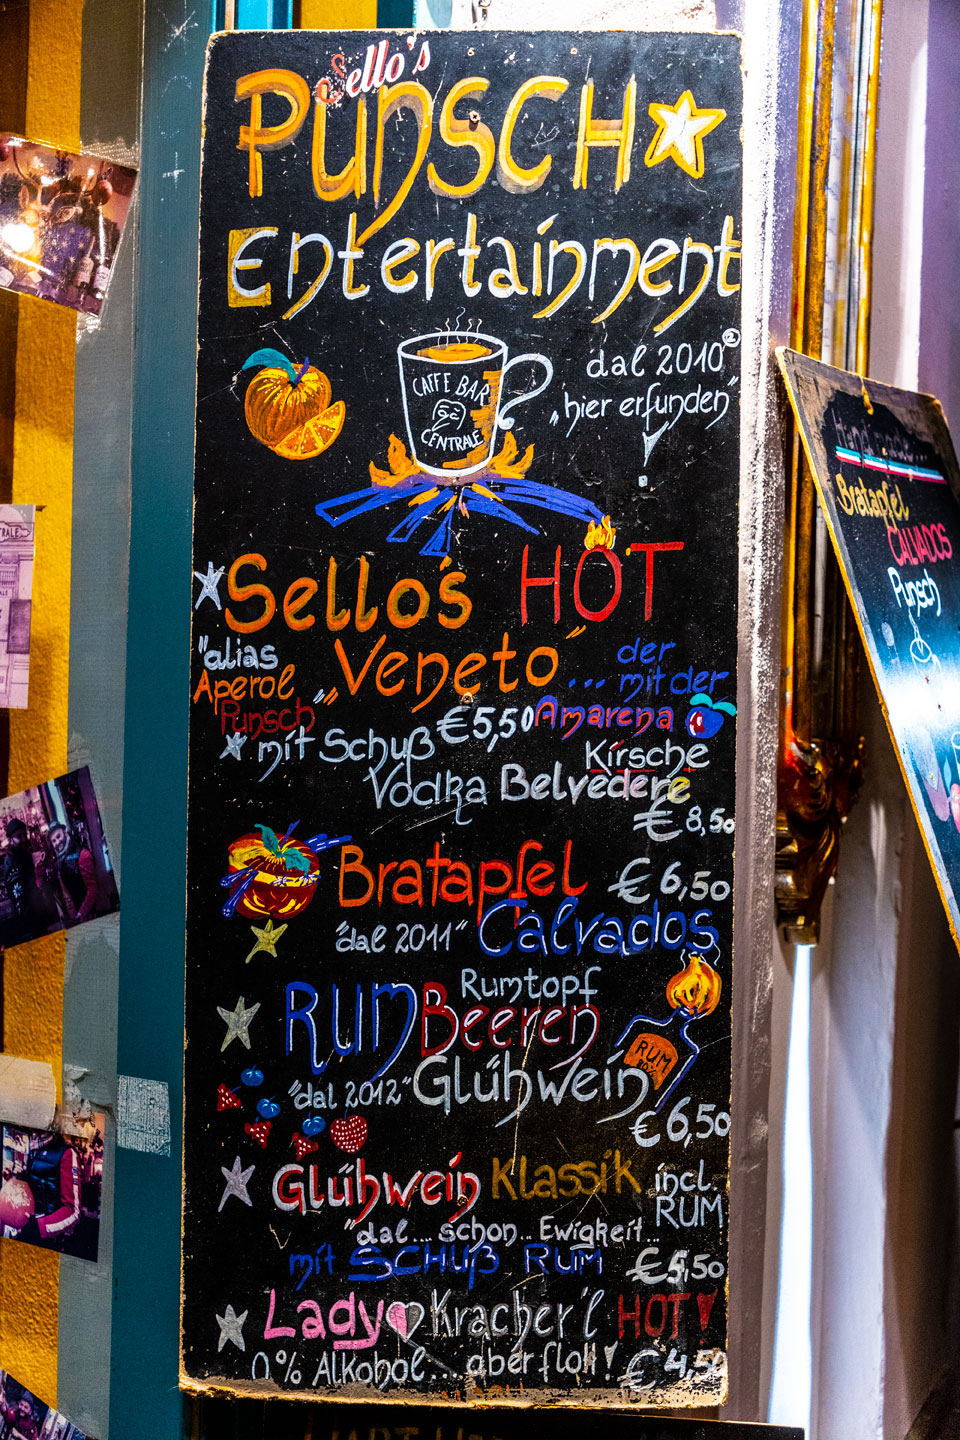 Sello's
PUNSCH
Entertainment
dal 2010
„hier erfunden"
CAFFE BAR
CENTRALE
Sello's HOT
"alias
Aperol
Punsch"
„Veneto"
... der
mit der
Amarena
Kirsche
* mit Schuß €5,50
Vodka Belvedere
€ 8,50
Bratapfel € 6,50
"dal 2011" Calvados
Rumtopf
RUM Beeren
"dal 2012" Glühwein
RUM
€ 6,50
Glühwein Klassik incl.
RUM
"dal... schon.. Ewigkeit...
mit SCHUß RUM €5,50
Lady Kracher'l HOT!
0% Alkohol.... aber floh! € 4,50
Handmade...
Bratapfel
CALVADOS
Punsch